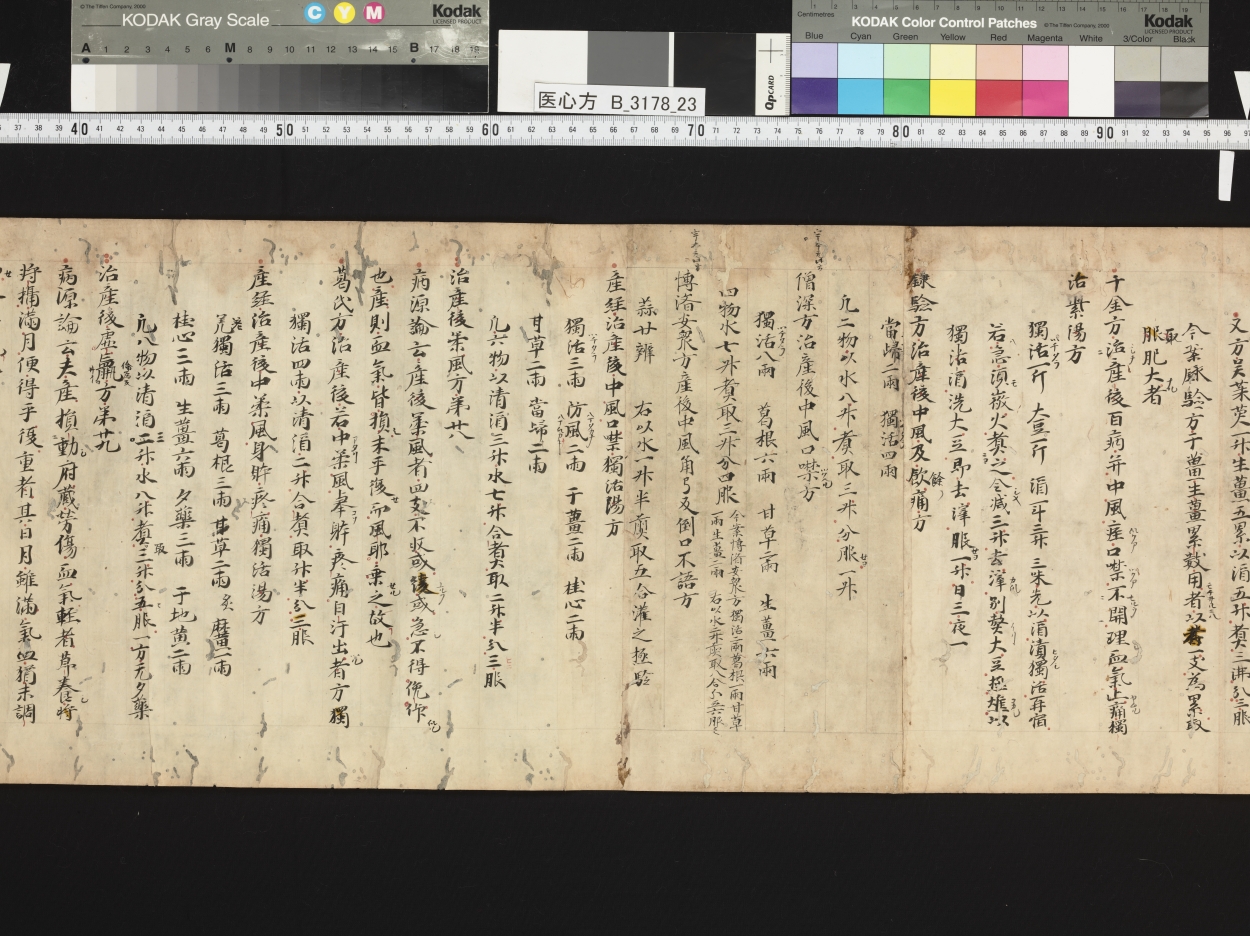 © The Tiffen Company, 2000
KODAK Gray Scale
C Y M
Kodak
LICENSED PRODUCT
A 1 2 3 4 5 6 M 8 9 10 11 12 13 14 15 B 17 18 19
医心方 B_3178_23
QpCARD
Centimetres
KODAK Color Control Patches
© The Tiffen Company, 2000
Kodak
LICENSED PRODUCT
Blue Cyan Green Yellow Red Magenta White 3/Color Black
又方吴茱萸一升生薑五累以酒五升煮三沸分三服
今案録驗方干薑生薑累數用者以一支為累取
肥大者
千金方治産後百病并中風痙口噤不開理血氣止痛獨
治紫湯方
獨活一斤 大豆一斤 酒一斗三升 三味先以酒漬獨活再宿
若急須微火煮之令減三升去滓別熬大豆極燋以
獨活酒洗大豆即去滓服一升日三夜一
録驗方治産後中風及餘痛方
當歸二兩 獨活四兩
凡二物以水八升煮取三升分服一升
僧深方治産後中風口噤方
獨活八兩 葛根六兩 甘草二兩 生薑六兩
四物水七升煮取三升分四服
今案博濟安衆方獨活二兩葛根一兩甘草
一兩生薑二兩 右以水二升煎取八合分五六服之
博濟安衆方産後中風角弓反倒口不語方
蒜廿辨 右以水一升半煎取五合灌之極驗
産經治産後中風口噤獨活湯方
獨活三兩 防風二兩 干薑二兩 桂心二兩
甘草二兩 當歸二兩
凡六物以清酒三升水七升合煮取二升半分三服
治産後柔風方第廿八
病源論云産後柔風者四支不收或緩或急不得俛仰
也産則血氣皆損未平復而風邪乘之故也
葛氏方治産後若中柔風舉體疼痛自汗出者方獨
獨活四兩以清酒二升合煮取升半分三服
産經治産後中柔風身體疼痛獨活湯方
羌獨活三兩 葛根三兩 甘草二兩炙 麻黄一兩
桂心三兩 生薑六兩 夕藥三兩 干地黄二兩
凡八物以清酒二升水八升煮取三升分五服一方无夕藥
治産後虚羸方第廿九
病源論云夫産損動府藏勞傷血氣輕者節養將
將攝滿月便得平復重者其日月雖滿氣血猶未調